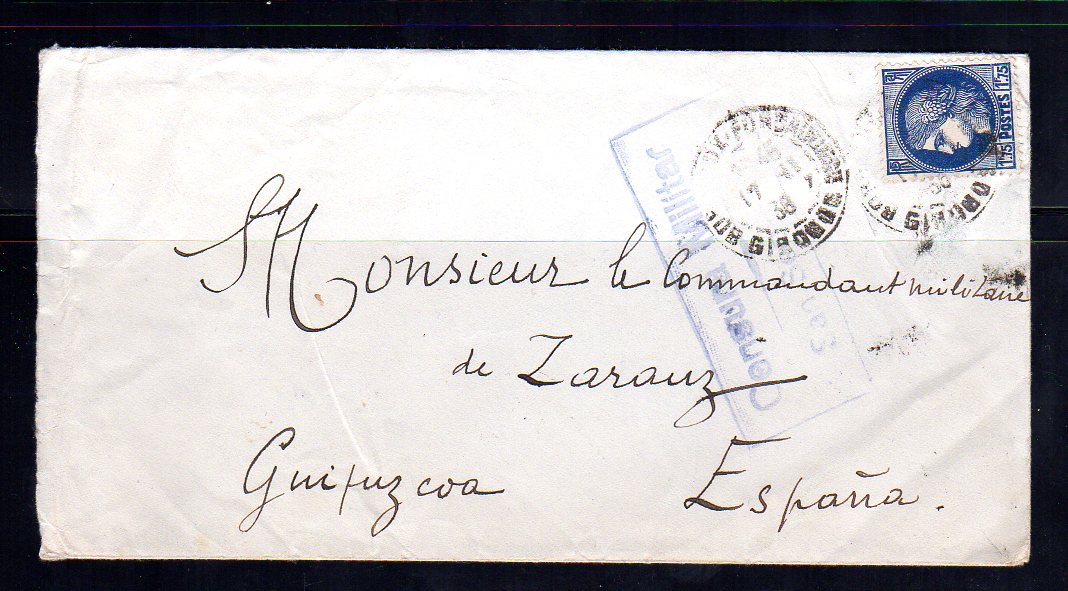 1.75 POSTES 1.75
17
38
Censura Militar
Monsieur le Commandant militaire
de Zarauz
Guipuzcoa España.